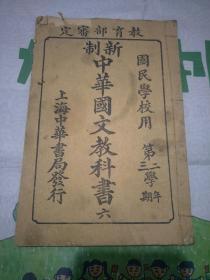 教育部審定
國民學校用
第二三學年期
新制
中華國文教科書 六
上海中華書局發行